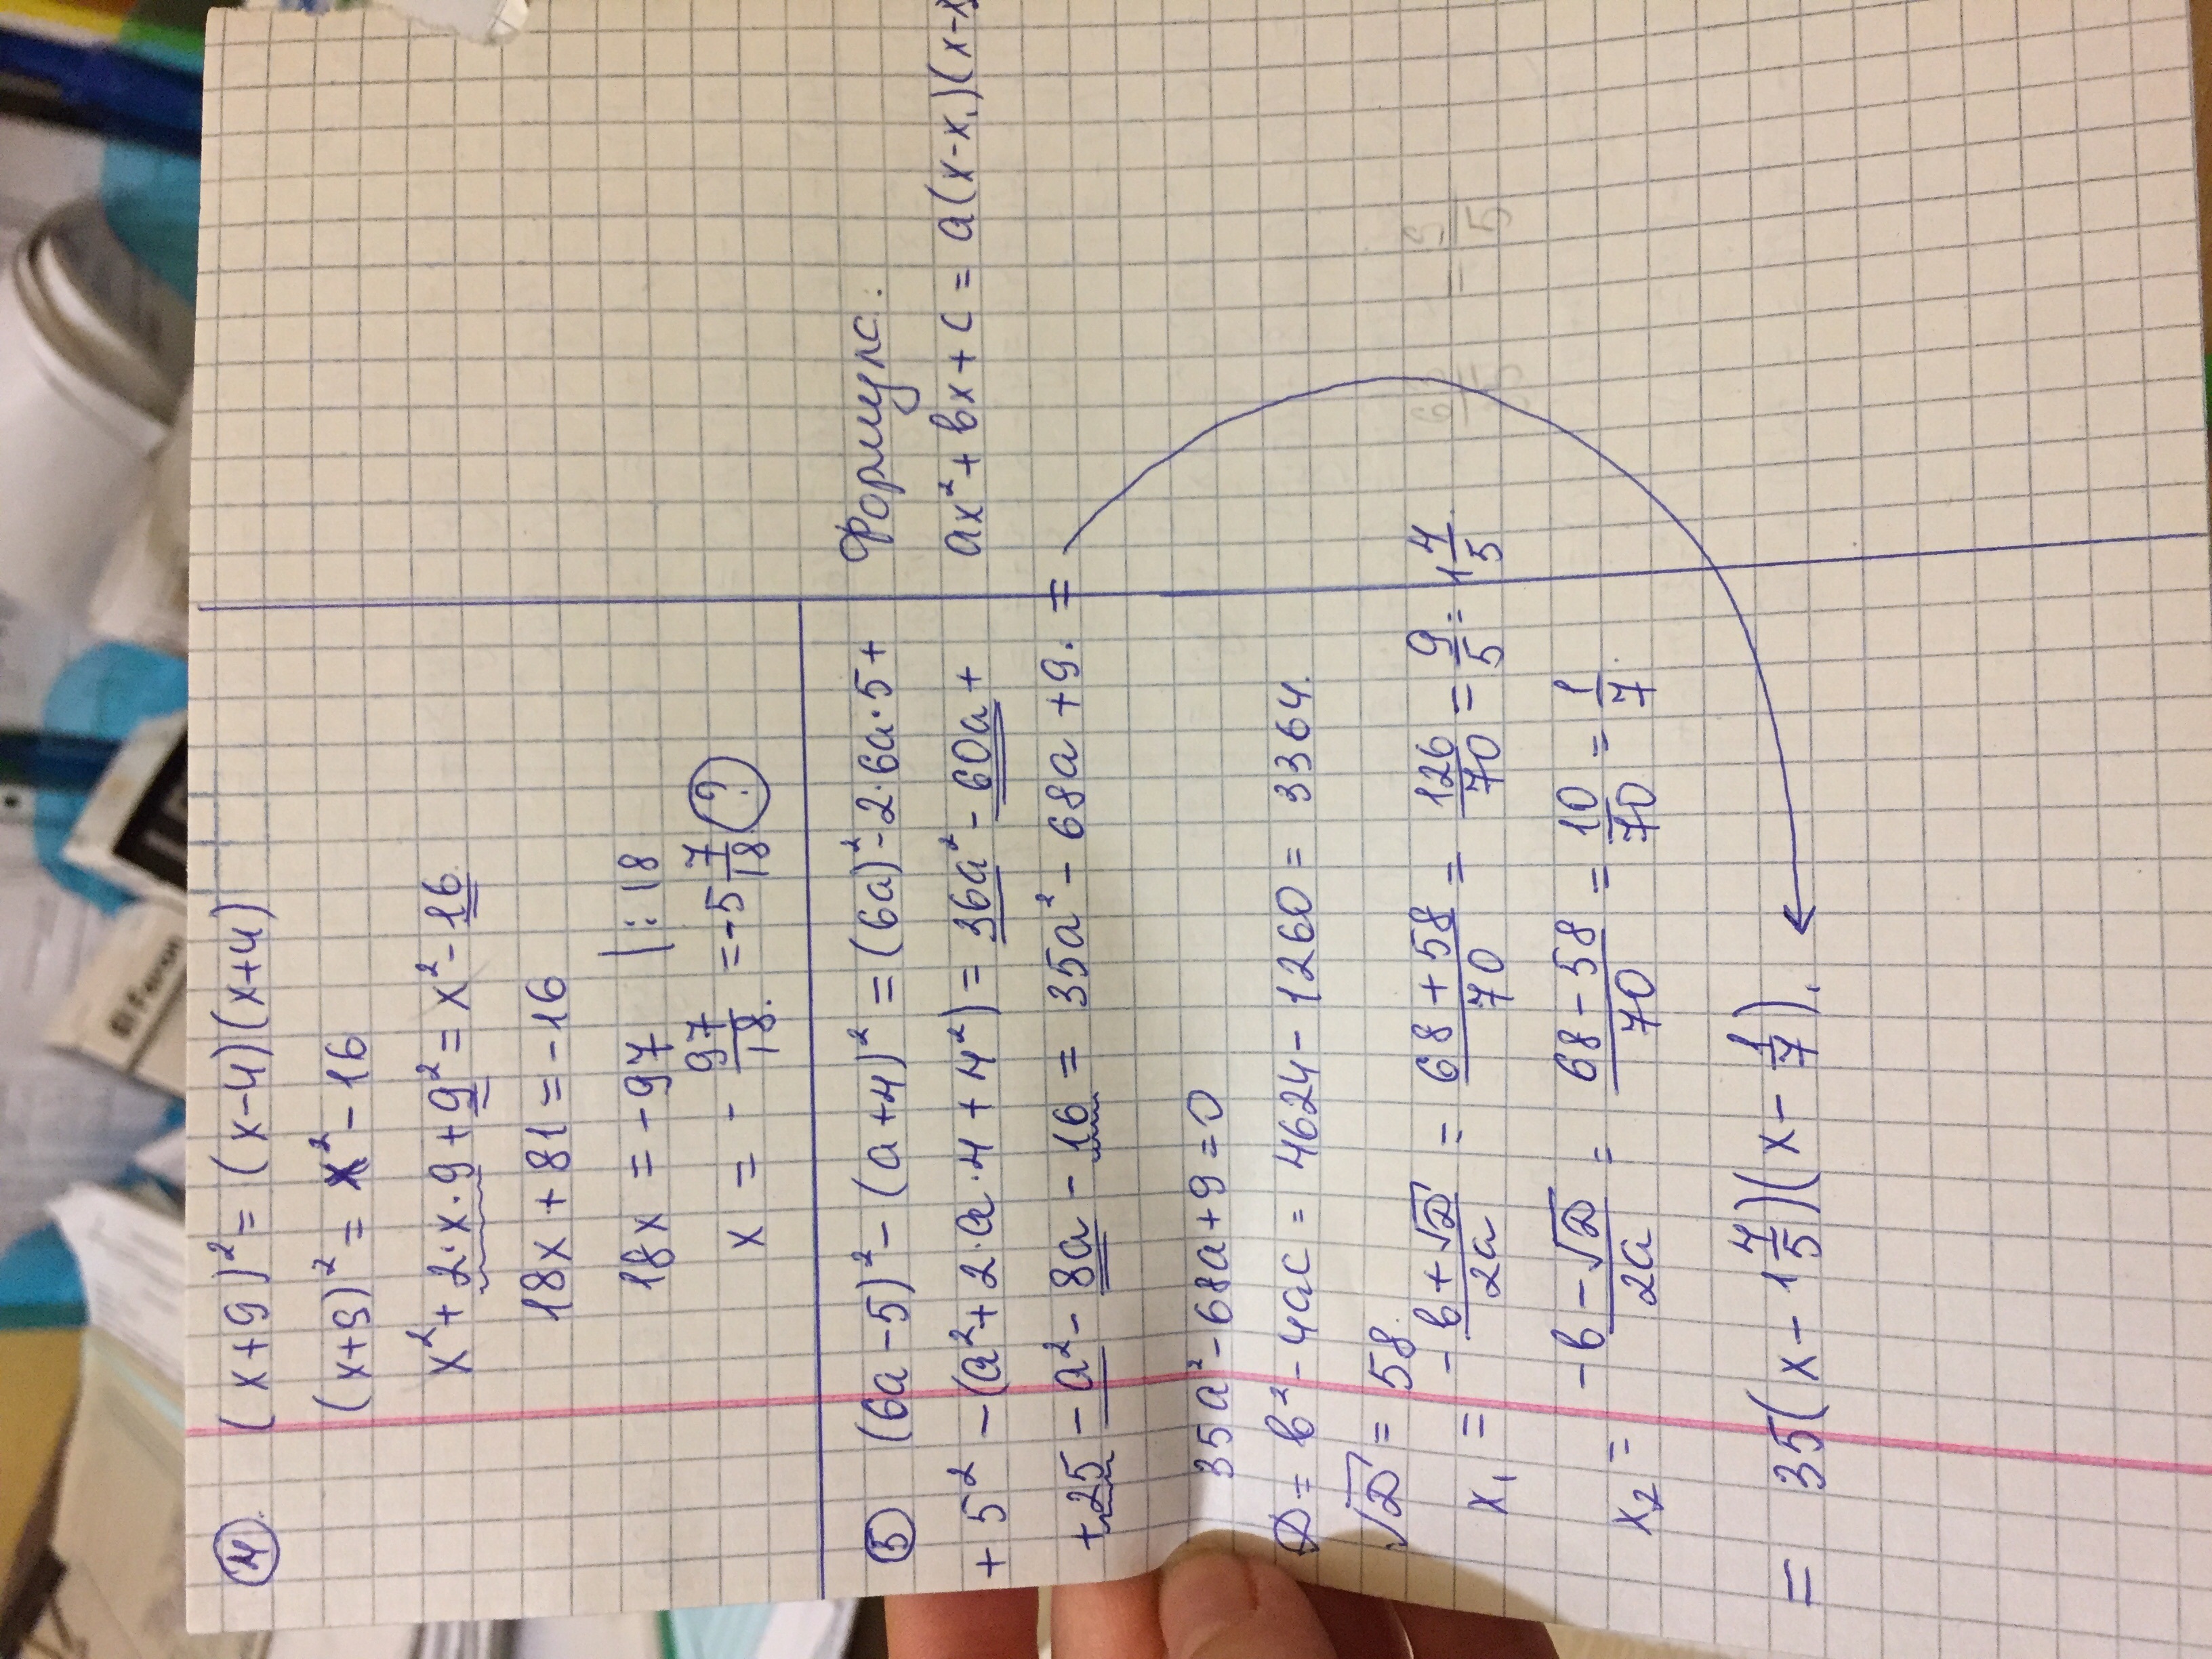 4. (x+9)² = (x-4)(x+4)
(x+9)² = x² - 16
x² + 2·x·9 + 9² = x² - 16
18x + 81 = -16
18x = -97 |:18
x = - 97/18. = -5 7/18 (?)
5 (6a-5)² - (a+4)² = (6a)² - 2·6a·5 +
+ 5² - (a² + 2·a·4 + 4²) = 36a² - 60a +
+ 25 - a² - 8a - 16 = 35a² - 68a + 9. =
Формула:
ax² + bx + c = a(x-x₁)(x-
35a² - 68a + 9 = 0
D = b² - 4ac = 4624 - 1260 = 3364.
√D = 58.
x₁ = (-b + √D)/2a = (68 + 58)/70 = 126/70 = 9/5 = 1 4/5.
x₂ = (-b - √D)/2a = (68 - 58)/70 = 10/70 = 1/7.
= 35(x - 1 4/5)(x - 1/7).